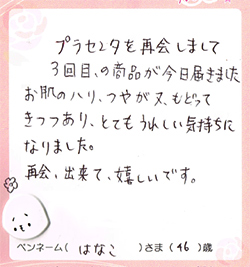 プラセンタを再会しまして
3回目、の商品が今日届きました
お肌のハリ、つやが又、もどって
きつつあり、とてもうれしい気持ちに
なりました。
再会、出来て、嬉しいです。
ペンネーム( はなこ )さま(46)歳